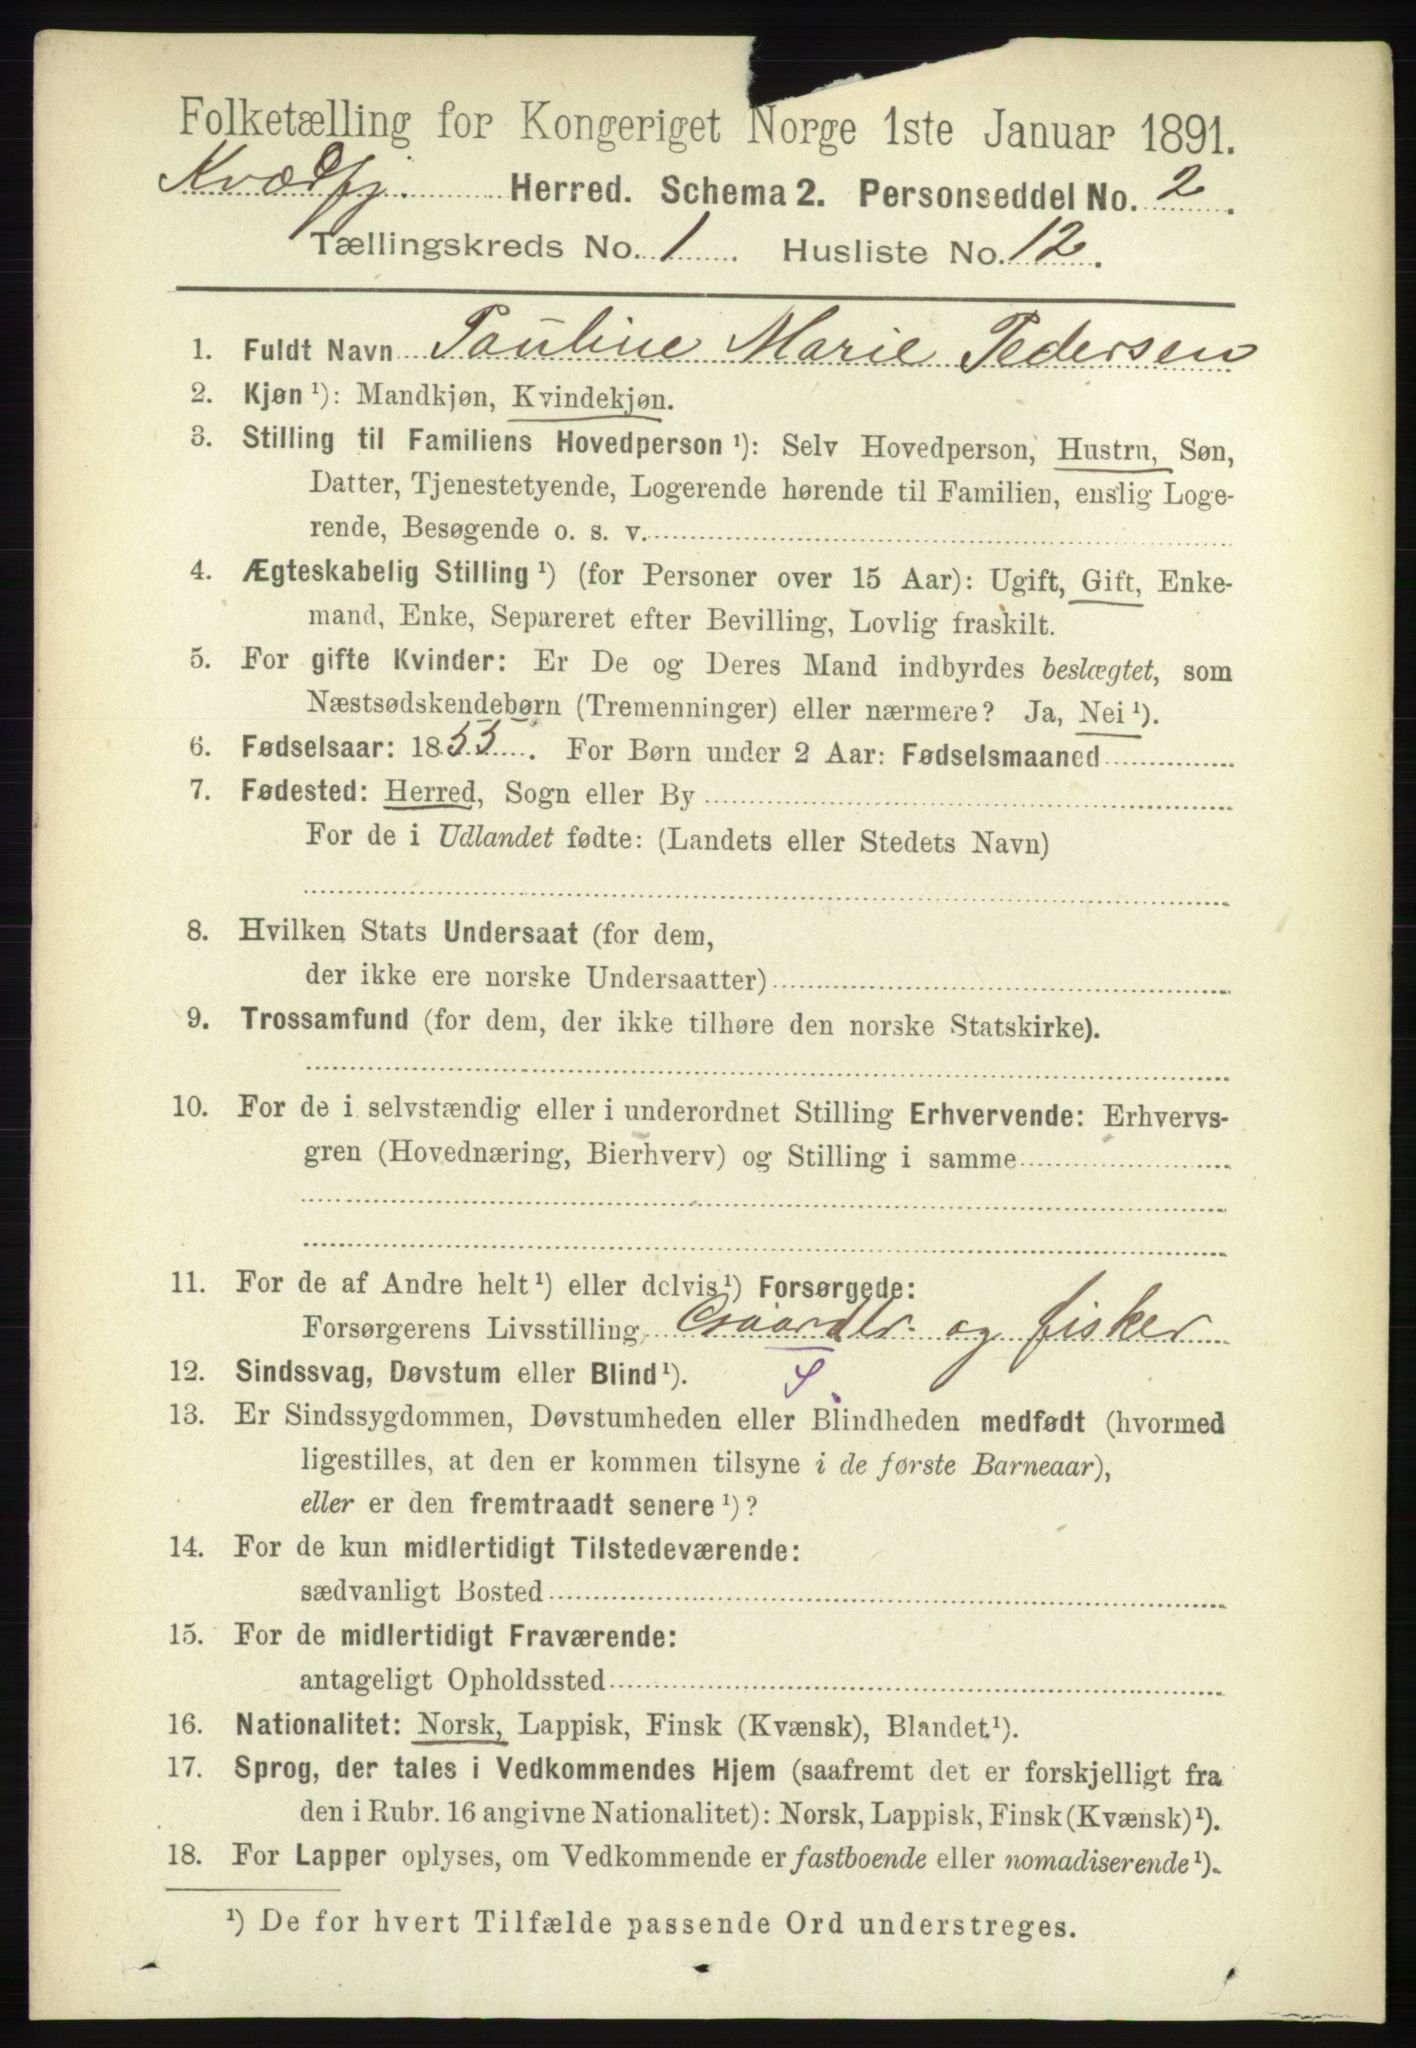 Folketælling for Kongeriget Norge 1ste Januar 1891.
Kvædfj. Herred. Schema 2. Personseddel No. 2.
Tællingskreds No. 1 Husliste No. 12.
1. Fuldt Navn Pauline Marie Pedersen
2. Kjøn ¹): Mandkjøn, Kvindekjøn.
3. Stilling til Familiens Hovedperson ¹): Selv Hovedperson, Hustru, Søn,
Datter, Tjenestetyende, Logerende hørende til Familien, enslig Loge-
rende, Besøgende o. s. v.
4. Ægteskabelig Stilling ¹) (for Personer over 15 Aar): Ugift, Gift, Enke-
mand, Enke, Separeret efter Bevilling, Lovlig fraskilt.
5. For gifte Kvinder: Er De og Deres Mand indbyrdes beslægtet, som
Næstsødskendebørn (Tremenninger) eller nærmere? Ja, Nei ¹).
6. Fødselsaar: 1855. For Børn under 2 Aar: Fødselsmaaned
7. Fødested: Herred, Sogn eller By
For de i Udlandet fødte: (Landets eller Stedets Navn)
8. Hvilken Stats Undersaat (for dem,
der ikke ere norske Undersaatter)
9. Trossamfund (for dem, der ikke tilhøre den norske Statskirke).
10. For de i selvstændig eller i underordnet Stilling Erhvervende: Erhvervs-
gren (Hovednæring, Bierhverv) og Stilling i samme
11. For de af Andre helt ¹) eller delvis ¹) Forsørgede:
Forsørgerens Livsstilling Gaardbr. og fisker
12. Sindssvag, Døvstum eller Blind ¹). S.
13. Er Sindssygdommen, Døvstumheden eller Blindheden medfødt (hvormed
ligestilles, at den er kommen tilsyne i de første Barneaar),
eller er den fremtraadt senere ¹)?
14. For de kun midlertidigt Tilstedeværende:
sædvanligt Bosted
15. For de midlertidigt Fraværende:
antageligt Opholdssted
16. Nationalitet: Norsk, Lappisk, Finsk (Kvænsk), Blandet ¹).
17. Sprog, der tales i Vedkommendes Hjem (saafremt det er forskjelligt fra
den i Rubr. 16 angivne Nationalitet): Norsk, Lappisk, Finsk (Kvænsk) ¹).
18. For Lapper oplyses, om Vedkommende er fastboende eller nomadiserende ¹).
¹) De for hvert Tilfælde passende Ord understreges.